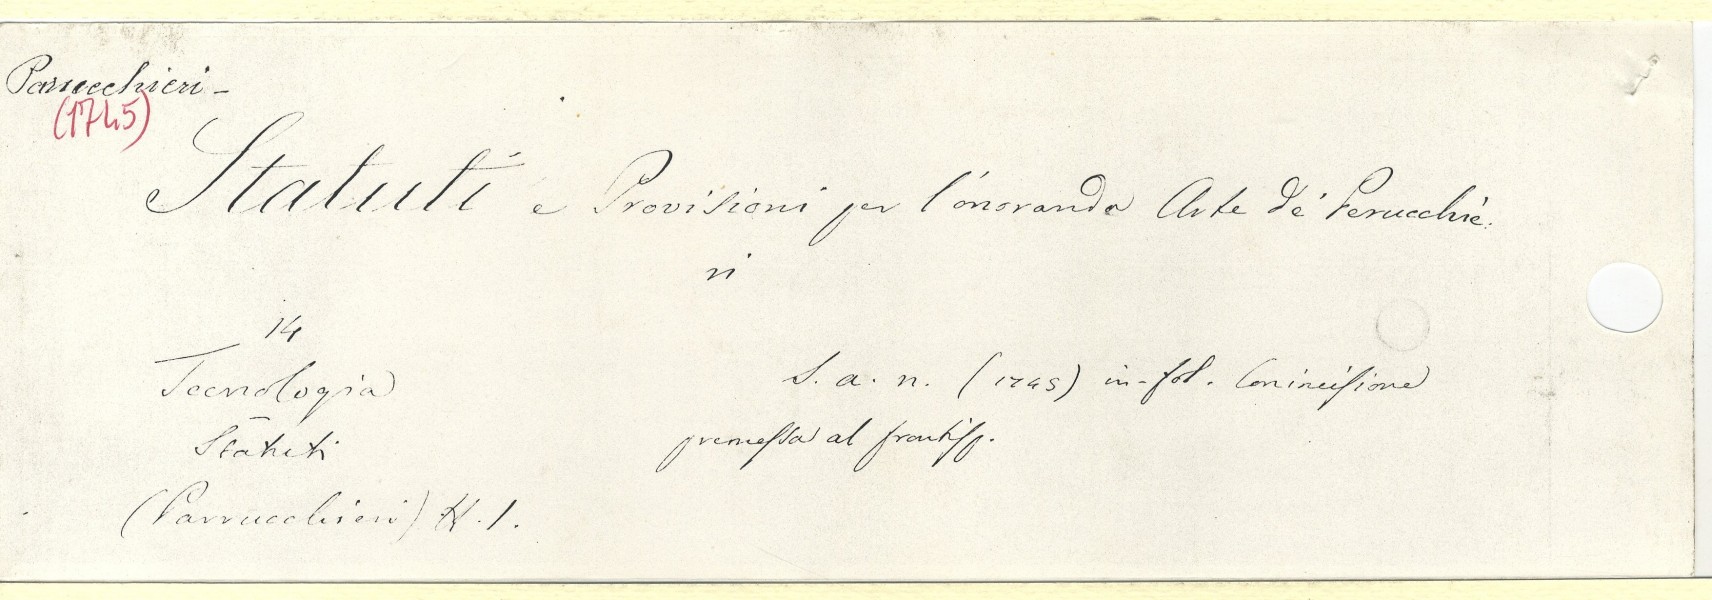 Parrucchieri -
(1745)
Statuti e Provisioni per l'onoranda Arte de' Perucchie:
ri
14
Tecnologia
Statuti
(Parrucchieri) N. 1.
S. a. n. (1745) in-fol. Con incisione
premessa al frontisp.